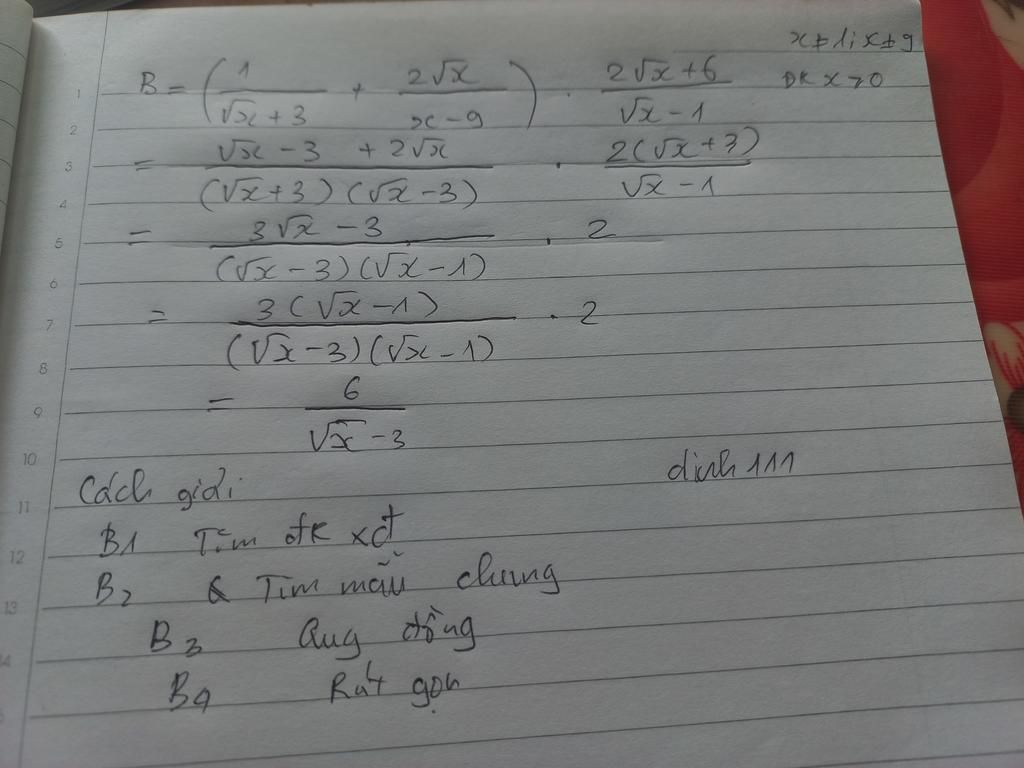 x ≠ 1; x ≠ 9
B = ( 1/(√x + 3) + 2√x/(x - 9) ) . (2√x + 6)/(√x - 1) ĐK x > 0
= (√x - 3 + 2√x)/((√x + 3)(√x - 3)) . 2(√x + 3)/(√x - 1)
= (3√x - 3)/((√x - 3)(√x - 1)) . 2
= 3(√x - 1)/((√x - 3)(√x - 1)) . 2
= 6/(√x - 3)
dinh 111
Cách giải
B1 Tìm đk xđ
B2 & Tìm mẫu chung
B3 Quy đồng
B4 Rút gọn
1
2
3
4
5
6
7
8
9
10
11
12
13
14